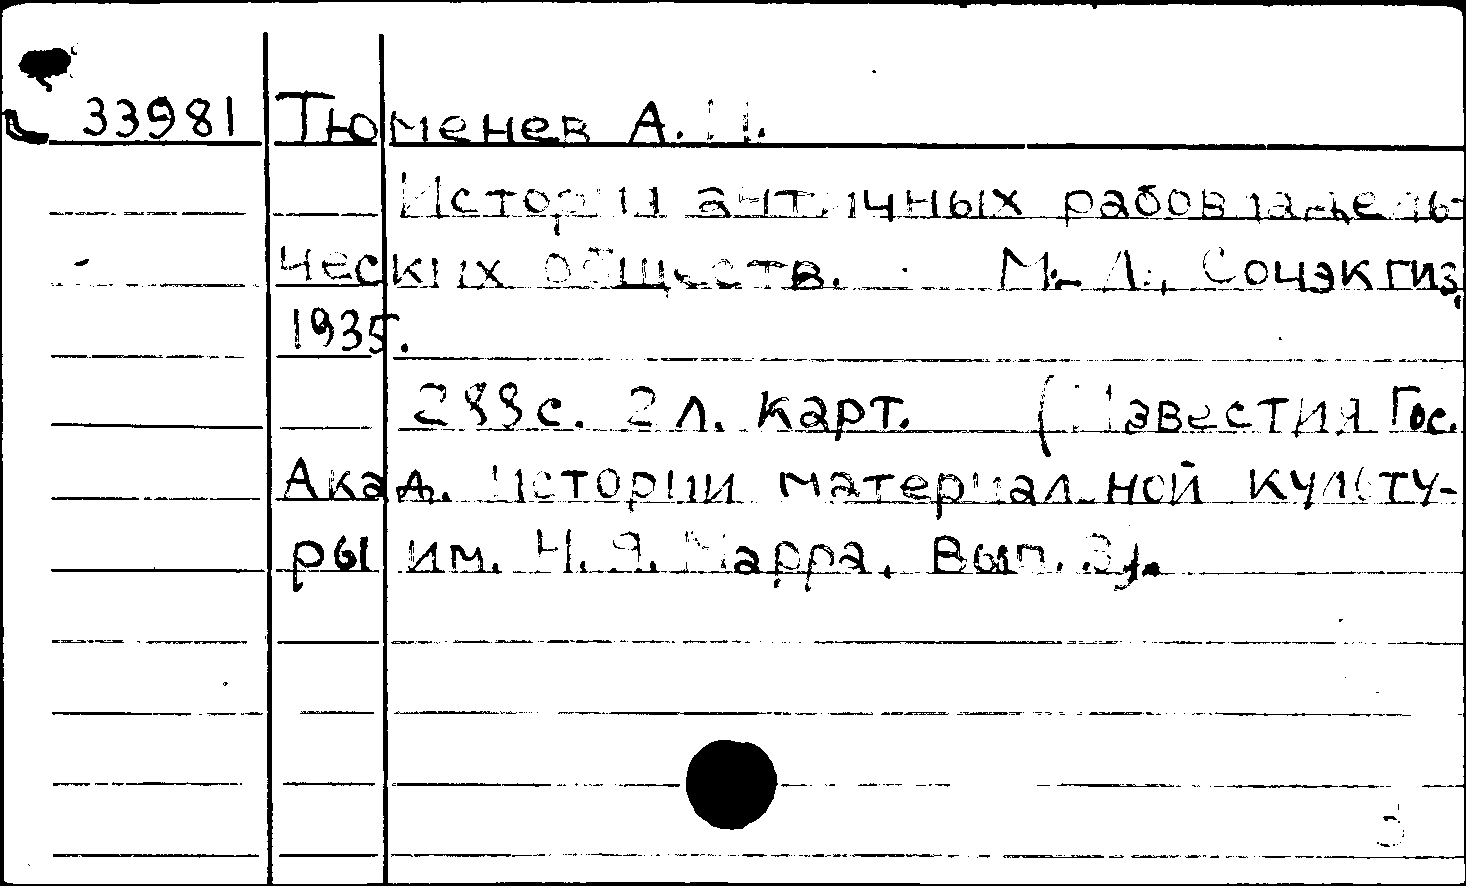 33981 Тюменев А. И.
История античных рабовладель-
ческих обществ. М.-Л., Соцэкгиз,
1935.
288с. 2 л. карт. (Известия Гос.
Акад. истории материальной культу-
ры им. Н. Я. Марра.